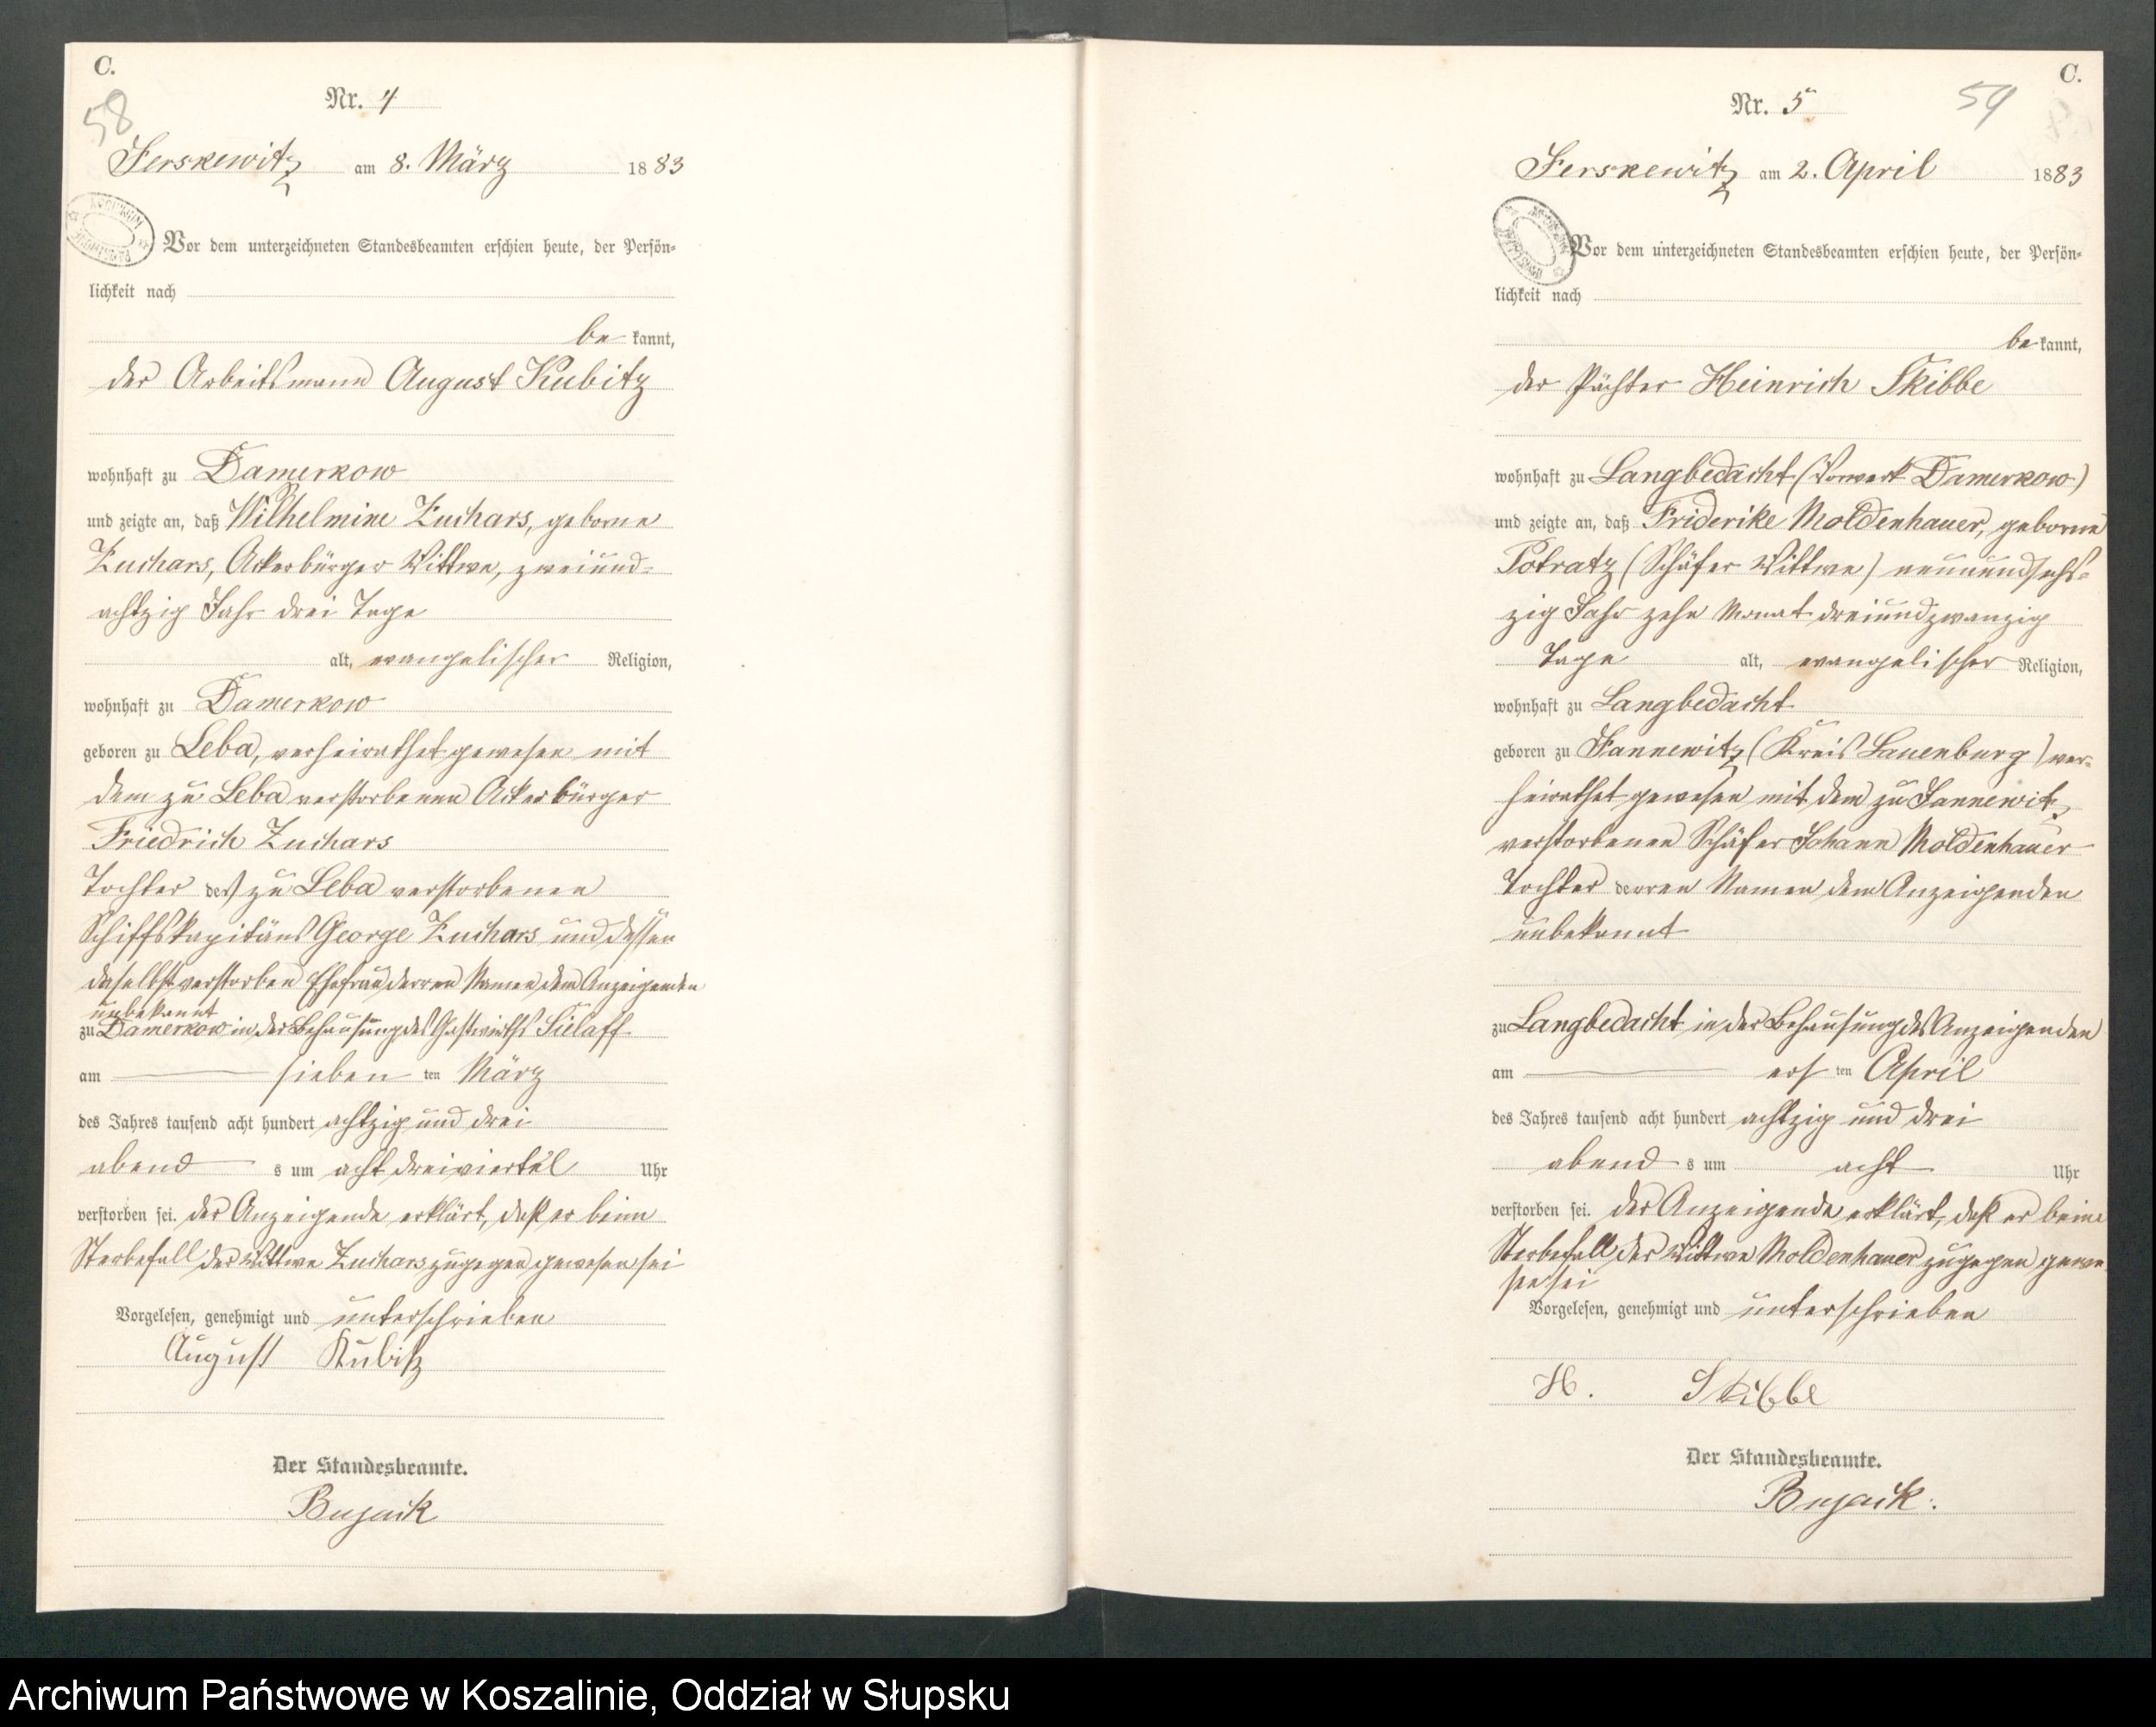 C.
58
Nr. 4
Ferskewitz am 8. März 1883
Vor dem unterzeichneten Standesbeamten erschien heute, der Persön-
lichkeit nach
be kannt,
der Arbeitsmann August Kubitz
wohnhaft zu Damerkow
und zeigte an, daß Wilhelmine Zuchars, geborne
Zuchars, Ackerbürger Wittwe, zweiund-
achtzig Jahr drei Tage
alt, evangelischer Religion,
wohnhaft zu Damerkow
geboren zu Leba, verheirathet gewesen mit
dem zu Leba verstorbenen Ackerbürger
Friedrich Zuchars
Tochter des zu Leba verstorbenen
Schiffskapitäns George Zuchars und dessen
daselbst verstorben Ehefrau derren Namen dem Anzeigenden
unbekannt
zu Damerkow in der Behausung des Gastwirths Sielaff
am sieben ten März
des Jahres tausend acht hundert achtzig und drei
abend s um acht dreiviertel Uhr
verstorben sei. der Anzeigende erklärt, daß er beim
Sterbefall der Wittwe Zuchars zugegen gewesen sei
Vorgelesen, genehmigt und unterschrieben
August Kubitz
Der Standesbeamte.
Bujack
C.
59
Nr. 5
Ferskewitz am 2. April 1883
Vor dem unterzeichneten Standesbeamten erschien heute, der Persön-
lichkeit nach
be kannt,
der Pächter Heinrich Skibbe
wohnhaft zu Langbedacht (Vorwerk Damerkow)
und zeigte an, daß Friderike Moldenhauer, geborne
Potratz (Schäfer Wittwe) neunundsechs-
zig Jahr zehn Monat dreiundzwanzig
Tage alt, evangelischer Religion,
wohnhaft zu Langbedacht
geboren zu Jannewitz (Kreis Lauenburg) ver-
heirathet gewesen mit dem zu Jannewitz
verstorbenen Schäfer Johann Moldenhauer
Tochter derren Namen dem Anzeigenden
unbekannt
zu Langbedacht in der Behausung des Anzeigenden
am ers ten April
des Jahres tausend acht hundert achtzig und drei
abend s um acht Uhr
verstorben sei. der Anzeigende erklärt, daß er beim
Sterbefall der Wittwe Moldenhauer zugegen gewe-
sen sei
Vorgelesen, genehmigt und unterschrieben
H. Skibbe
Der Standesbeamte.
Bujack.
Archiwum Państwowe w Koszalinie, Oddział w Słupsku